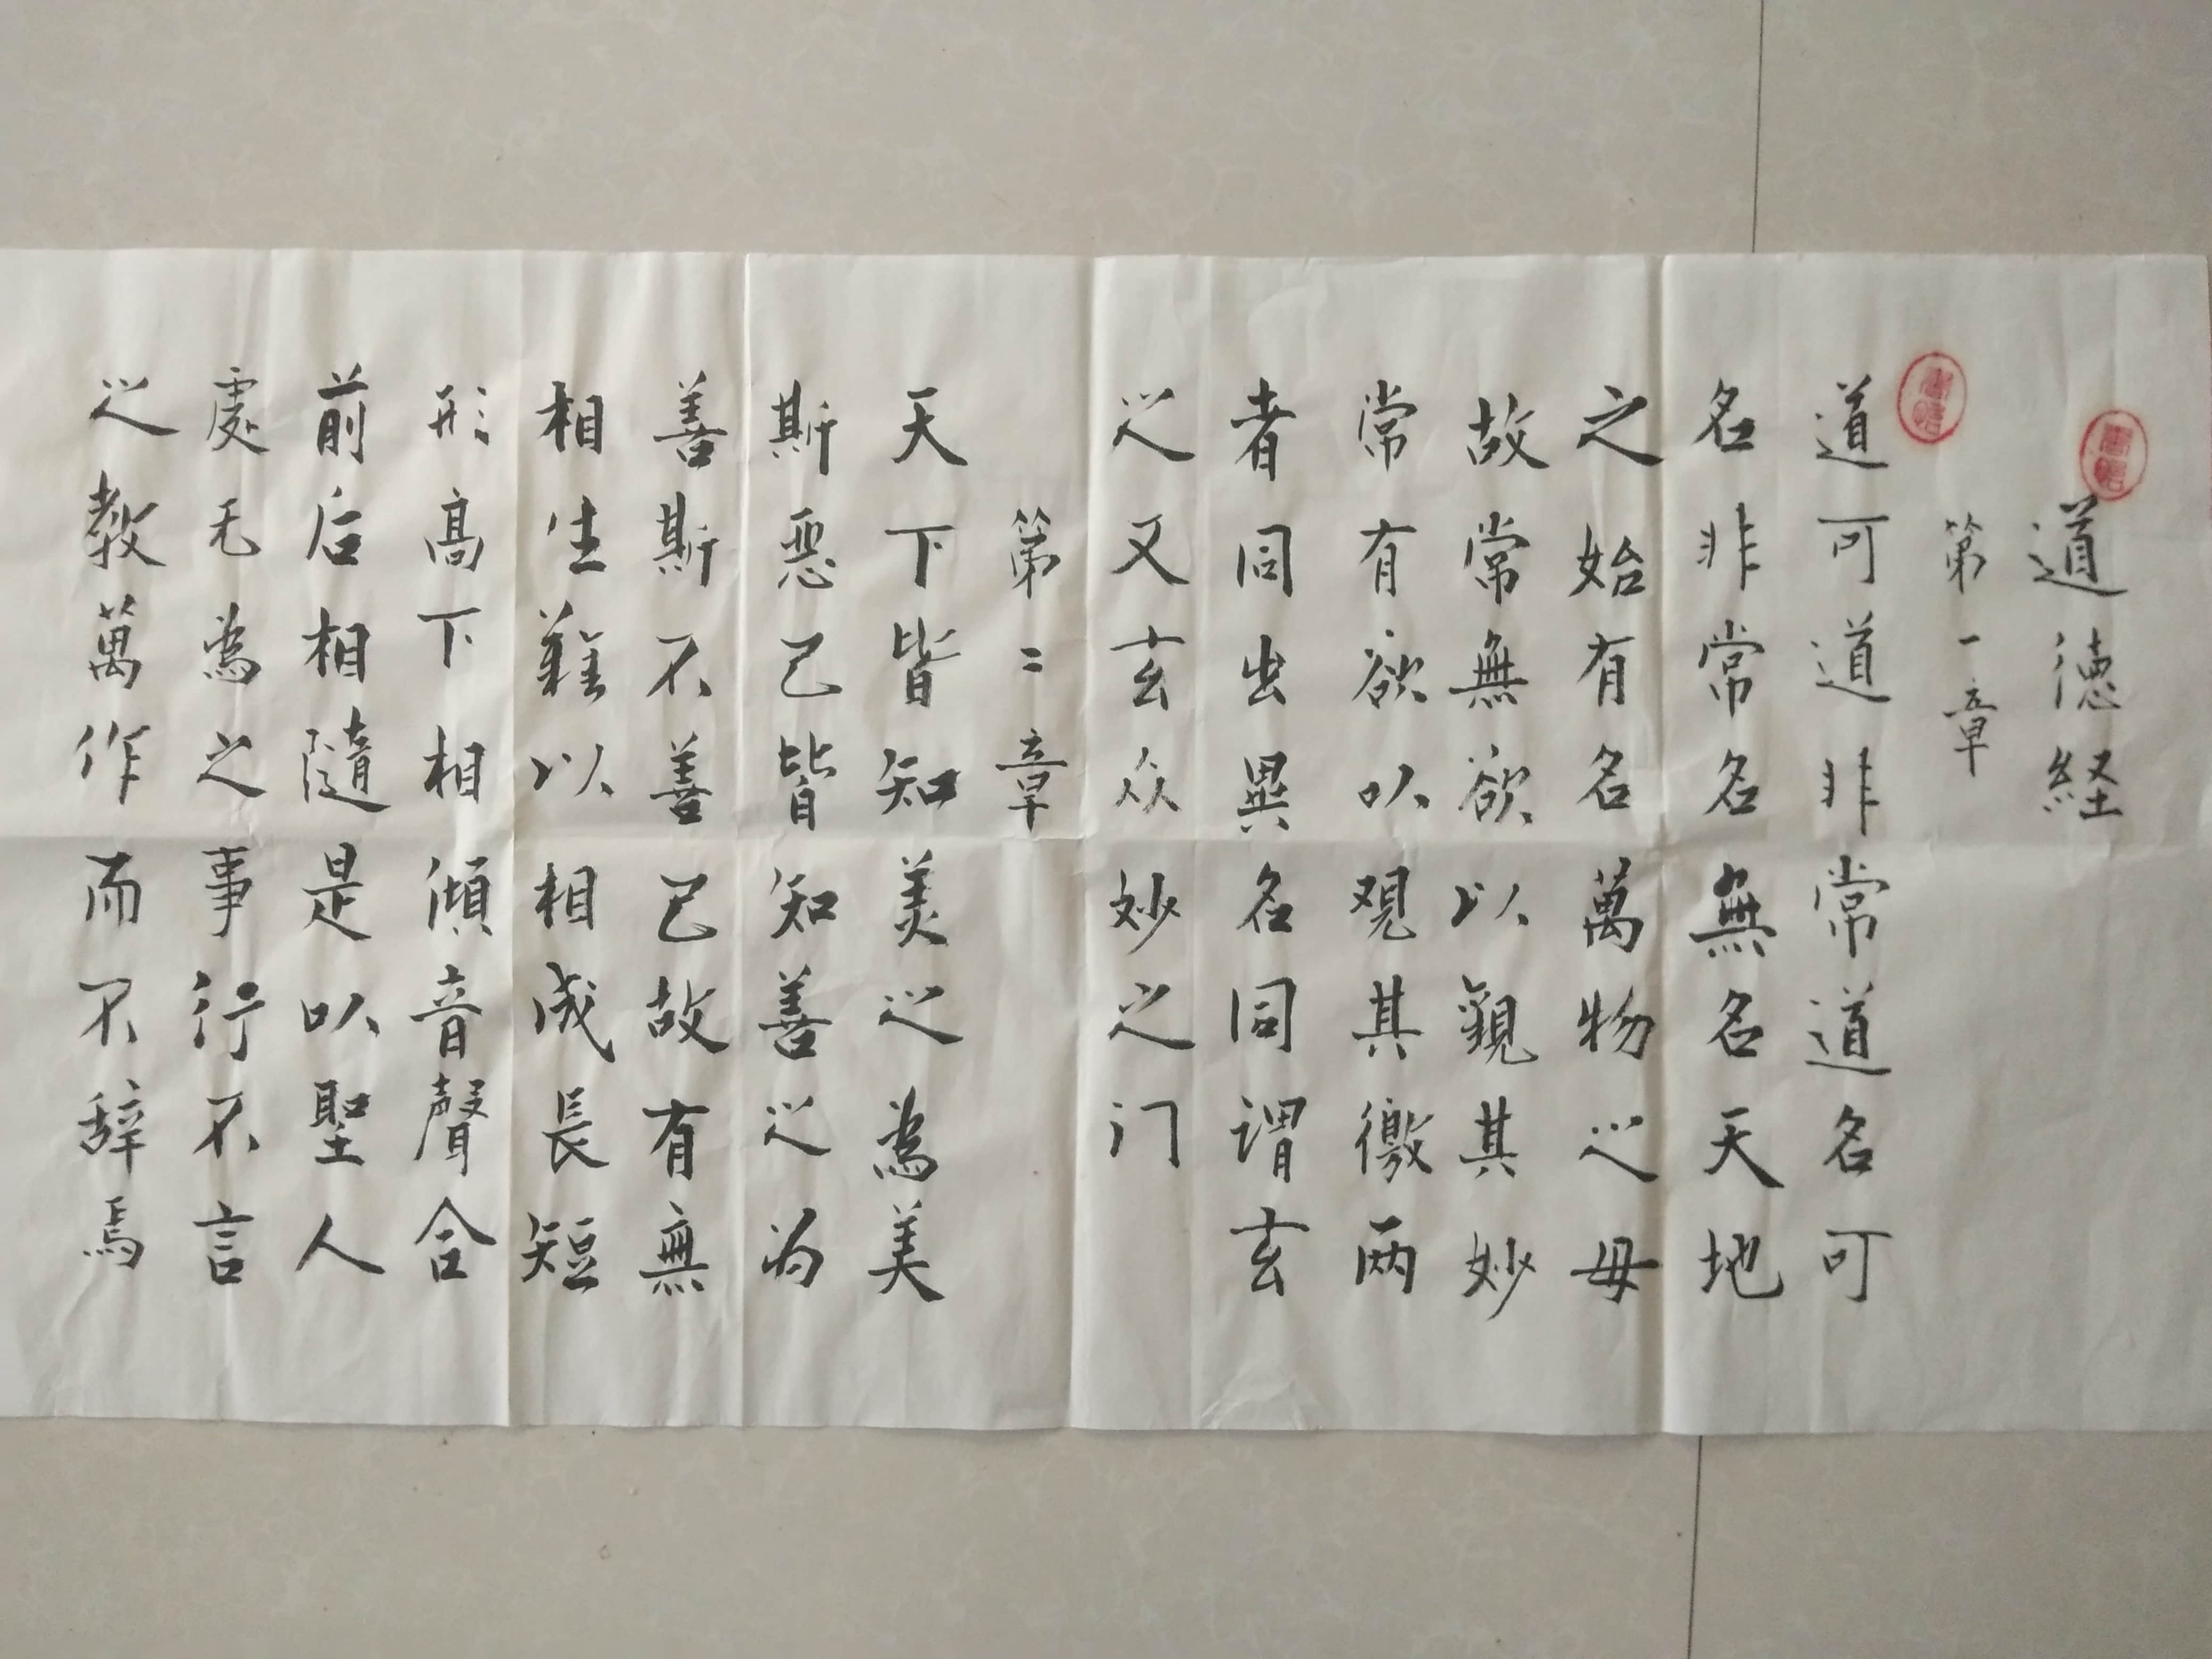 道德経
第一章
道可道道非常道名可
名非常名無名天地
之始有名萬物之母
故常無欲以觀其妙
常有欲以观其徼两
者同出異名同謂玄
之又玄众妙之门
第二章
天下皆知美之為美
斯惡已皆知善之为
善斯不善已故有無
相生難以相成長短
形高下相傾音聲合
前后相隨是以聖人
處无為之事行不言
之教萬作而不辞焉